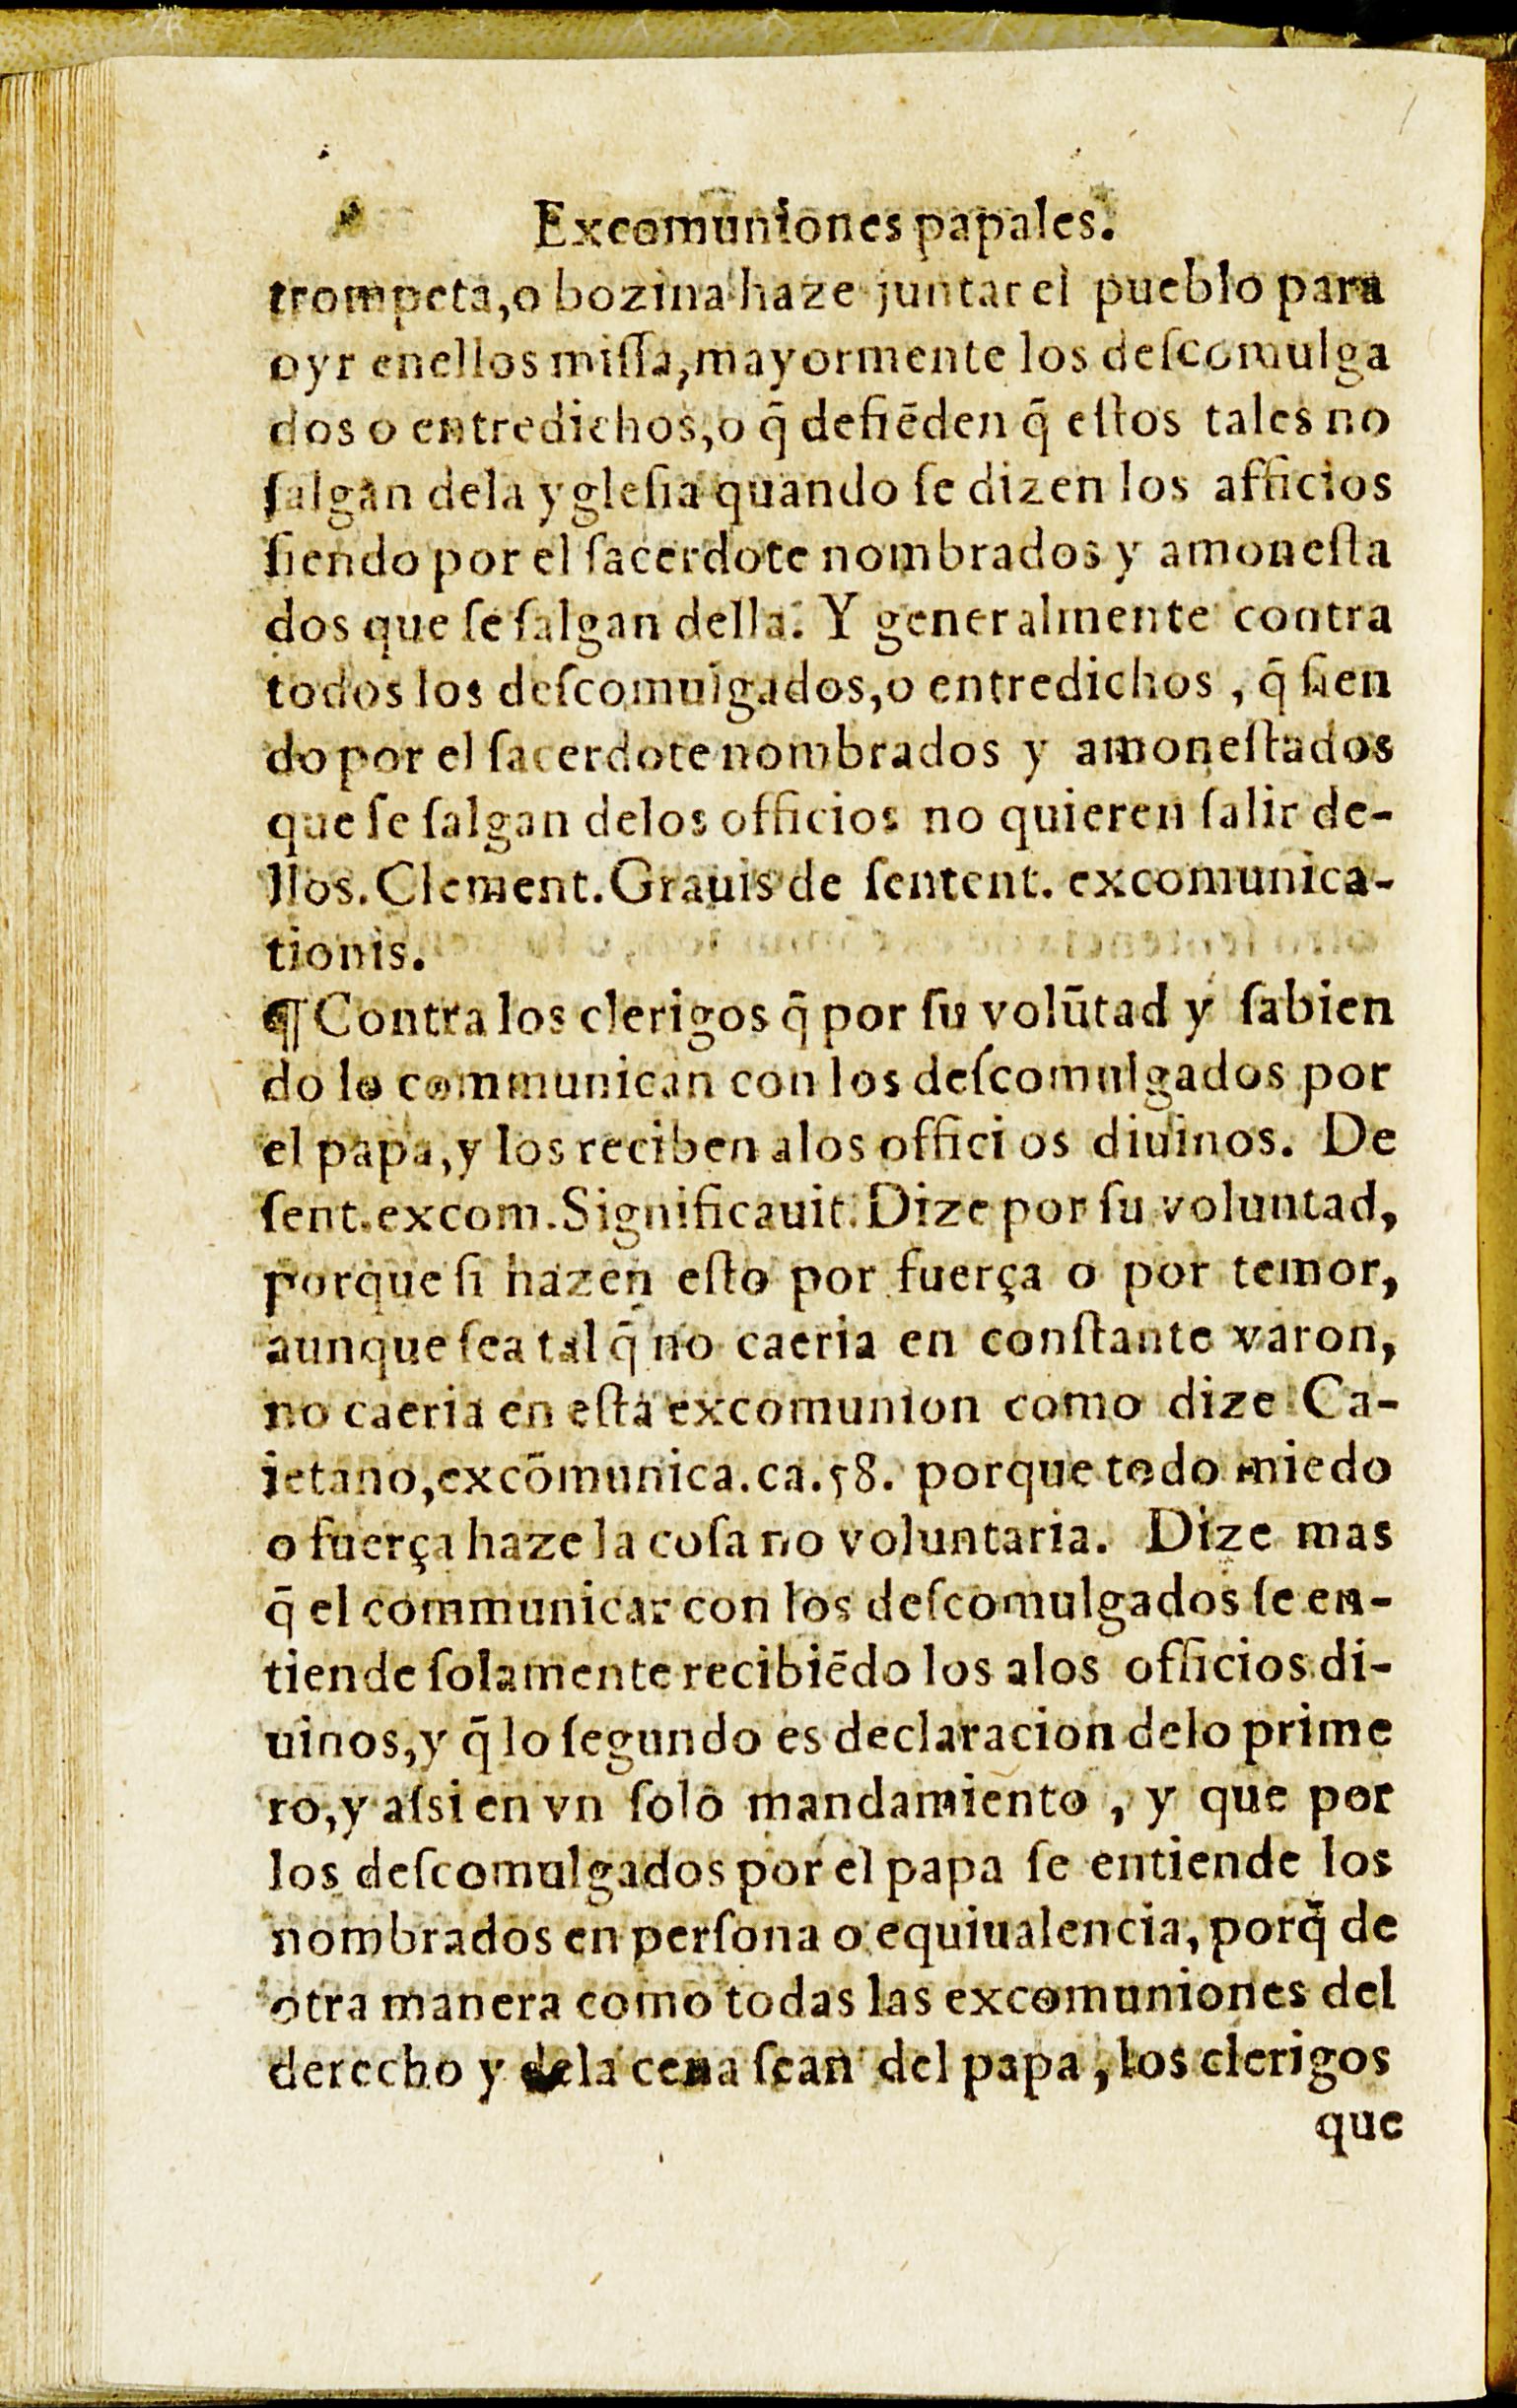 Excomuniones papales.
trompeta,o bozina haze juntar el pueblo para
oyr enellos miſſa,mayormente los deſcomulga
dos o entredichos,o q̄ defiēden q̄ eſtos tales no
ſalgan dela ygleſia quando ſe dizen los afficios
ſiendo por el ſacerdote nombrados y amoneſta
dos que ſe ſalgan della. Y generalmente contra
todos los deſcomulgados,o entredichos , q̄ ſien
do por el ſacerdote nombrados y amoneſtados
que ſe ſalgan delos officios no quieren ſalir de-
llos. Clement. Grauis de ſentent. excomunica-
tionis.
¶ Contra los clerigos q̄ por ſu volūtad y ſabien
do lo communican con los deſcomulgados por
el papa,y los reciben alos offici os diuinos. De
ſent. excom. Significauit. Dize por ſu voluntad,
porque ſi hazen eſto por fuerça o por temor,
aunque ſea tal q̄ no caeria en conſtante varon,
no caeria en eſta excomunion como dize Ca-
ietano,excōmunica.ca.58. porque todo miedo
o fuerça haze la coſa no voluntaria. Dize mas
q̄ el communicar con los deſcomulgados ſe en-
tiende ſolamente recibiēdo los alos officios di-
uinos,y q̄ lo ſegundo es declaracion delo prime
ro,y aſsi en vn ſolo mandamiento , y que por
los deſcomulgados por el papa ſe entiende los
nombrados en perſona o equiualencia, porq̄ de
otra manera como todas las excomuniones del
derecho y dela cena ſean del papa , los clerigos
que